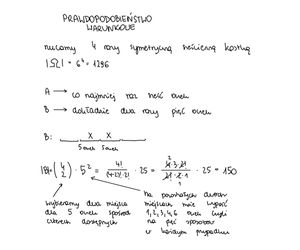 PRAWDOPODOBIEŃSTWO
WARUNKOWE
rzucamy 4 razy symetryczną sześcienną kostką
|Ω| = 6⁴ = 1296
A → co najmniej raz sześć oczek
B → dokładnie dwa razy pięć oczek
B: __ X X __
5 oczek 5 oczek
|B| = (4 2) · 5² = 4!/((4-2)!·2!) · 25 = 4·3·2!/(2!·2·1) · 25 = 150
wybieramy dwa miejsca
dla 5 oczek spośród
czterech dostępnych
Na pozostałych dwóch
miejscach może wypaść
1,2,3,4,6 oczek czyli
na pięć sposobów
w każdym przypadku